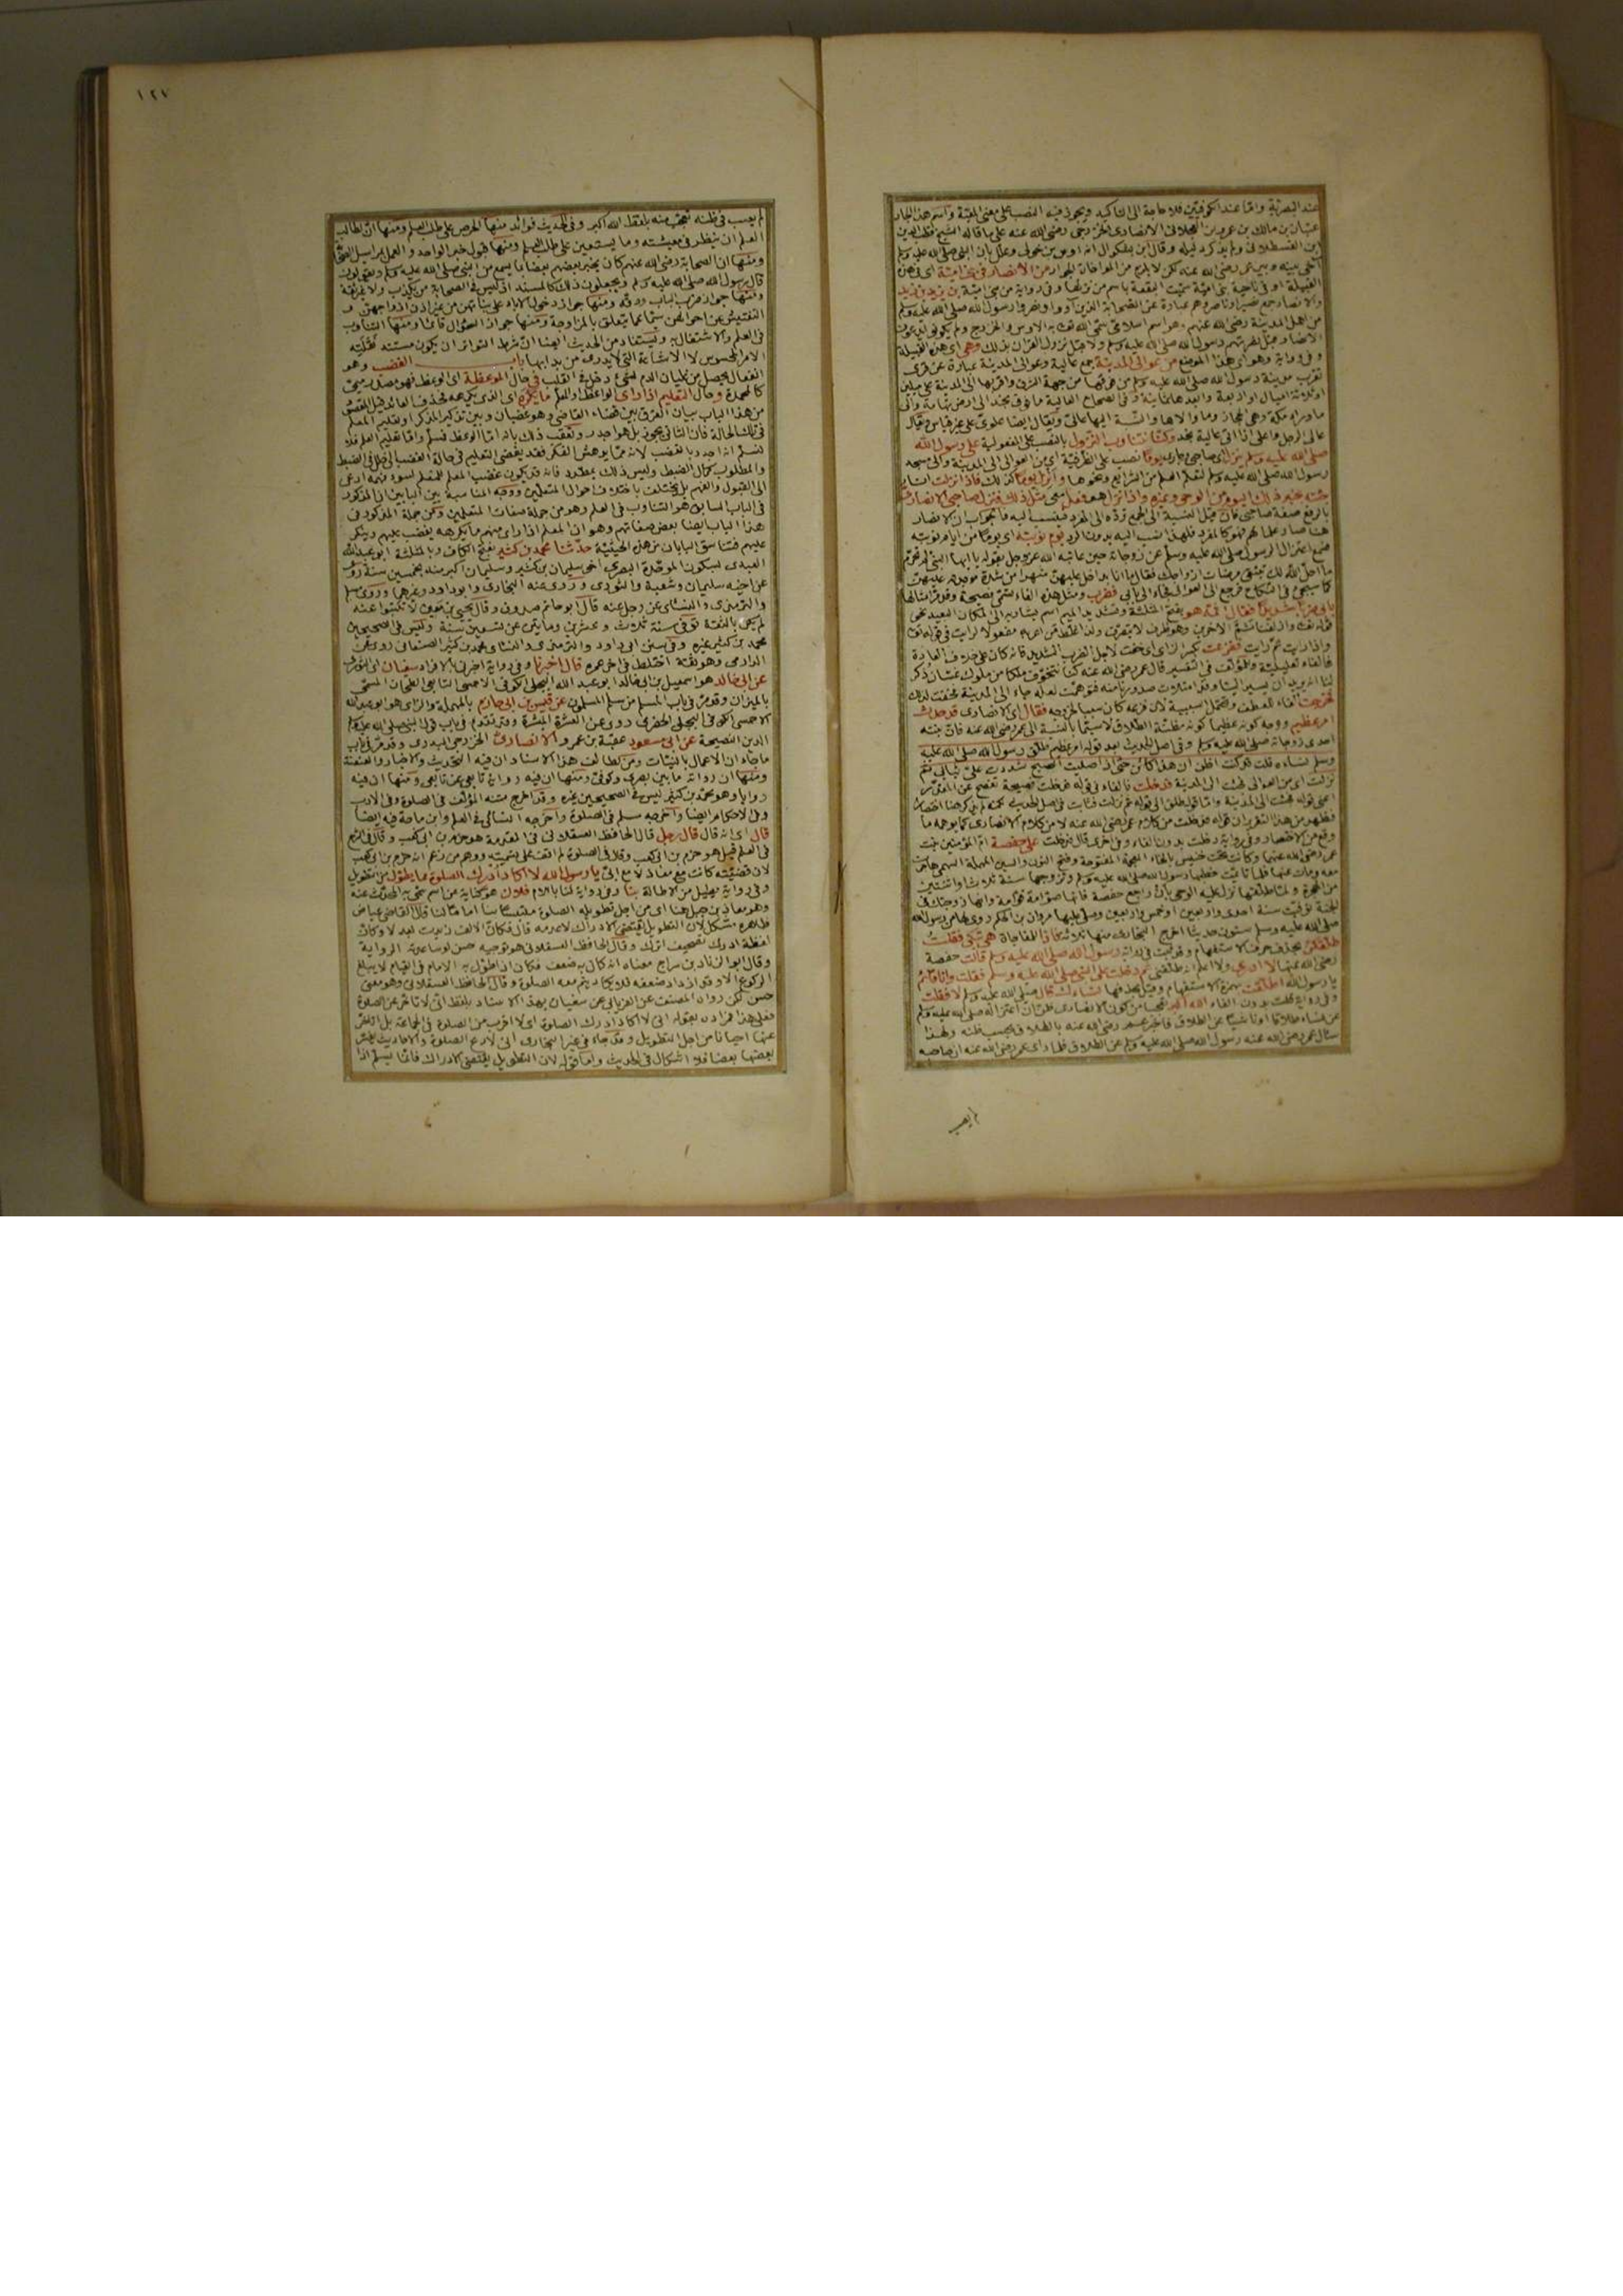 عند البصرية واما عند الكوفيين فلا حاجة الى التاكيد ويجوز فيه النصب على معنى المعية واسم هذا الجار
عتبان بن مالك بن عمرو بن العجلانى الانصارى الخزرجى رضى الله عنه على ما قاله الشيخ قطب الدين
ابن القسطلانى ولم يذكر دليله وقال ابن بشكوال انه اوس بن خولى وعلل بان النبى صلى الله عليه وسلم
آخى بينه وبين عمر رضى الله عنه لكن لا يلزم من المواخاة الجوار من الانصار فى بنى امية اى فى هذه
القبيلة او فى ناحية بنى امية سميت البقعة باسم من نزلها وفى رواية من بنى امية بن زيد
والانصار جمع نصير او ناصر وهم عبارة عن الصحابة الذين آووا ونصروا رسول الله صلى الله عليه وسلم
من اهل المدينة رضى الله عنهم وهو اسم اسلامى سمى الله تعالى به الاوس والخزرج ولم يكونوا يدعون
الانصار قبل نصرتهم رسول الله صلى الله عليه وسلم ولا قبل نزول القرآن بذلك وهى اى هذه القبيلة
وفى رواية وهو اى هذا الموضع من عوالى المدينة جمع عالية وعوالى المدينة عبارة عن قرى
بقرب مدينة رسول الله صلى الله عليه وسلم من فوقها من جهة الشرق واقربها الى المدينة على ميلين
او ثلاثة اميال او اربعة وابعدها ثمانية وفى الصحاح العالية ما فوق نجد الى ارض تهامة والى
ما وراء مكة وهى الحجاز وما والاها والنسبة اليها عالى ويقال ايضا علوى على غير قياس ويقال
عالى الرجل واعلى اذا اتى عالية نجد وكنا نتناوب النزول بالنصب على المفعولية على رسول الله
صلى الله عليه وسلم ينزل اى صاحبى وجارى يوما نصب على الظرفية اى من العوالى الى المدينة والى مسجد
رسول الله صلى الله عليه وسلم لتعلم العلم من الشرائع ونحوها وانزل يوما كذلك فاذا نزلت انا
جئته بخبر ذلك اليوم من الوحى وغيره واذا نزل هو فعل معى مثل ذلك فنزل صاحبى الانصارى
بالرفع صفة صاحبى فان قيل النسبة الى الجمع ترده الى المفرد فينسب اليه فالجواب ان الانصار
هنا صار علما لهم فهو كالمفرد فلهذا نسب اليه بدون الرد يوم نوبته اى يوما من ايام نوبته
فسمع اعتزال الرسول صلى الله عليه وسلم عن زوجاته حين عاتبه الله عز وجل بقوله يا ايها النبى لم تحرم
ما احل الله لك تبتغى مرضات ازواجك فقال ما انا بداخل عليهن شهرا من شدة موجدته عليهن
كما سيجئ فى النكاح فرجع الى العوالى فجاء الى بابى فضرب ومثل هذه الفاء تسمى فصيحة
بابى ضربا شديدا فقال اثم هو بفتح المثلثة وتشديد الميم اسم يشار به الى المكان البعيد نحو
قوله تعالى وازلفنا ثم الآخرين وهو ظرف لا يتصرف ولذا غلط من اعربه مفعولا لرايت فى قوله تعالى
واذا رايت ثم رايت ففزعت بكسر الزاى اى خفت لاجل الضرب الشديد فانه كان على خلاف العادة
فالفاء تعليلية وللمؤلف فى التفسير قال عمر رضى الله عنه كنا نتخوف ملكا من ملوك غسان ذكر
لنا انه يريد ان يسير الينا وقد امتلأت صدورنا منه فتوهمت لعله جاء الى المدينة فخفت لذلك
فخرجت الفاء للعطف وتحتمل السببية لان فزعه كان سببا لخروجه فقال اى الانصارى قد حدث
امر عظيم ووجه كونه عظيما كونه مظنة الطلاق لا سيما بالنسبة الى عمر رضى الله عنه فان بنته
احدى زوجاته صلى الله عليه وسلم وفى اصل الحديث بعد قوله امر عظيم طلق رسول الله صلى الله عليه
وسلم نساءه قلت قد كنت اظن ان هذا كائن حتى اذا صليت الصبح شددت على ثيابى ثم
نزلت اى من العوالى فجئت الى المدينة فدخلت فالفاء فى قوله فدخلت فصيحة تفصح عن المقدر
اعنى قوله فجئت الى المدينة
فظهر من هذا التقرير ان قوله فدخلت من كلام عمر رضى الله عنه لا من كلام الانصارى كما يوهمه ما
وقع من الاختصار وفى رواية دخلت بدون الفاء وفى اخرى قال فدخلت على حفصة ام المؤمنين بنت
عمر رضى الله عنهما وكانت تحت خنيس بالخاء المعجمة المفتوحة وفتح النون وبالسين المهملة السهمى هاجرت
معه ومات عنها فلما تايمت خطبها رسول الله صلى الله عليه وسلم وتزوجها سنة ثلاث او اثنتين
من الهجرة ولما طلقها نزل عليه الوحى بان راجع حفصة فانها صوامة قوامة وانها زوجتك فى
الجنة توفيت سنة احدى واربعين او خمس واربعين وصلى عليها مروان بن الحكم روى لها من رسول الله
صلى الله عليه وسلم ستون حديثا اخرج البخارى منها ثلاثة فاذا للمفاجاة هى تبكى فقلت
طلقكن بحذف حرف الاستفهام وقد ثبت فى رواية رسول الله صلى الله عليه وسلم قالت حفصة
رضى الله عنها لا ادرى ولا اعلم انه طلقنى ثم دخلت على النبى صلى الله عليه وسلم فقلت وانا قائم
يا رسول الله اطلقت بهمزة الاستفهام وقيل بحذفها نساءك قال صلى الله عليه وسلم لا فقلت
وفى رواية قلت بدون الفاء الله اكبر تعجبا من كون الانصارى ظن ان اعتزاله صلى الله عليه وسلم
عن نساءه طلاقا او ناشئا عن الطلاق فاخبر عمر رضى الله عنه بالطلاق بحسب ظنه ولهذا
سال عمر رضى الله عنه رسول الله صلى الله عليه وسلم عن الطلاق فلما راى عمر رضى الله عنه ان صاحبه
لم يصب
١٢٧
لم يصب فى ظنه تعجب منه بلفظ الله اكبر وفى الحديث فوائد منها الحرص على طلب العلم ومنها ان لطالب
العلم ان ينظر فى معيشته وما يستعين على طلب العلم ومنها قبول خبر الواحد والعمل بمراسيل الصحابة
ومنها ان الصحابة رضى الله عنهم كان يخبر بعضهم بعضا بما يسمع من النبى صلى الله عليه وسلم ويقولون
قال رسول الله صلى الله عليه وسلم ويجعلون ذلك كالمسند اذ ليس فى الصحابة من يكذب ولا غير ثقة
ومنها جواز ضرب الباب ودقه ومنها جواز دخول الآباء على بناتهم من غير اذن ازواجهن و
التفتيش عن احوالهن سيما عما يتعلق بالمزاوجة ومنها جواز السؤال قائما ومنها التناوب
فى العلم والاشتغال به ويستفاد من الحديث ايضا ان شرط التواتر ان يكون مستند نقلته
الامر المحسوس لا الاشاعة التى لا يدرى من بدا بها باب الغضب وهو
انفعال يحصل من غليان الدم لشئ دخل فى القلب فى حال الموعظة اى الوعظ فهو مصدر ميمى
وحال التعليم اذا راى الواعظ والمعلم ما يكره اى الذى يكرهه فحذف العائد قيل المقصود
من هذا الباب بيان الفرق بين قضاء القاضى وهو غضبان وبين تذكير المذكر او تعليم المعلم
فى تلك الحالة فان الثانى يجوز بل هو اجدر وتعقب ذلك بانه اما الوعظ فمسلم واما تعليم العلم فلا
نسلم انه اجدر بالغضب لانه مما يدهش الفكر فقد يفضى التعليم فى حالة الغضب الى خلل فى الضبط
والمطلوب كمال الضبط وليس ذلك بمطرد فانه قد يكون غضب المعلم للمتعلم لسوء فهمه ادعى
الى القبول والفهم بل يختلف باختلاف احوال المتعلمين ووجه المناسبة بين البابين ان المذكور
فى الباب السابق هو التناوب فى العلم وهو من جملة صفات المتعلمين ومن جملة المذكور فى
هذا الباب ايضا بعض صفاتهم وهو ان المعلم اذا راى منهم ما يكرهه يغضب عليهم وينكر
عليهم فتناسق البابان من هذه الحيثية حدثنا محمد بن كثير بفتح الكاف وبالمثلثة ابو عبد الله
العبدى بسكون الموحدة البصرى اخى سليمان بن كثير وسليمان اكبر منه بخمسين سنة روى
عن اخيه سليمان وشعبة والثورى وروى عنه البخارى وابو داود وغيرهما وروى مسلم
والترمذى والنسائى عن رجل عنه قال ابو حاتم صدوق وقال يحيى بن معين لا تكتبوا عنه
لم يكن بالثقة توفى سنة ثلاث وعشرين ومايتين عن تسعين سنة وليس فى الصحيحين
محمد بن كثير غيره وفى سنن ابى داود والترمذى والنسائى محمد بن كثير الصنعانى روى عن
الدارمى وهو ثقة اختلط فى آخر عمره قال اخبرنا وفى رواية اخرى بالافراد سفيان اى الثورى
عن ابن ابى خالد هو اسمعيل بن ابى خالد ابو عبد الله البجلى الكوفى الاحمسى التابعى الطحان المسمى
بالميزان وقد مر فى باب المسلم من سلم المسلمون عن قيس بن ابى حازم بالمهملة والزاى هو ابو عبد الله
الاحمسى الكوفى البجلى المخضرم روى عن العشرة المبشرة وقد تقدم فى باب قول النبى صلى الله عليه وسلم
الدين النصيحة عن ابى مسعود عقبة بن عمرو الانصارى الخزرجى البدرى وقد مر فى باب
ما جاء ان الاعمال بالنيات ومن لطائف هذا الاسناد ان فيه التحديث والاخبار والعنعنة
ومنها ان رواته ما بين بصرى وكوفى ومنها ان فيه رواية تابعى عن تابعى ومنها ان فيه
راويا وهو محمد بن كثير ليس فى الصحيحين غيره وقد اخرج متنه المؤلف فى الصلوة وفى الادب
وفى الاحكام ايضا واخرجه مسلم فى الصلوة واخرجه النسائى فى العلم وابن ماجة فيه ايضا
قال اى انه قال قال رجل قال الحافظ العسقلانى فى المقدمة هو حزم بن ابى كعب وقال فى الفتح
فى العلم قيل هو حزم بن ابى كعب وقال فى الصلوة لم اقف على تسميته ووهم من زعم انه حزم بن ابى كعب
لان قضيته كانت مع معاذ لا مع ابى يا رسول الله لا اكاد ادرك الصلوة مما يطول من التطويل
وفى رواية يطيل من الاطالة بنا وفى رواية لنا باللام فلان هو كناية عن اسم سمى به المحدث عنه
وهو معاذ بن جبل هنا اى من اجل تطويله الصلوة ملتبسا بنا اماما لنا قال القاضى عياض
ظاهره مشكل لان التطويل يقتضى الادراك لا عدمه قال فكان الالف زيدت بعد لا وكان
لفظة ادرك تصحيف اترك وقال الحافظ العسقلانى هو توجيه حسن لو ساعدته الرواية
وقال ابو الزناد بن سراج معناه انه كان به ضعف فكان اذا طول به الامام فى القيام لا يبلغ
الركوع الا وقد ازداد ضعفه فلا يكاد يتم معه الصلوة وقال الحافظ العسقلانى وهو معنى
حسن لكن رواه المصنف عن الفريابى عن سفيان بهذا الاسناد بلفظ انى لاتاخر عن الصلوة
فعلى هذا فمراده بقوله انى لا اكاد ادرك الصلوة اى لا اقرب من الصلوة فى الجماعة بل اتاخر
عنها احيانا من اجل التطويل وقد جاء فى غير البخارى انى لادع الصلوة والاحاديث يفسر
بعضها بعضا فلا اشكال فى الحديث واما قوله لان التطويل يقتضى الادراك فانما يسلم اذا